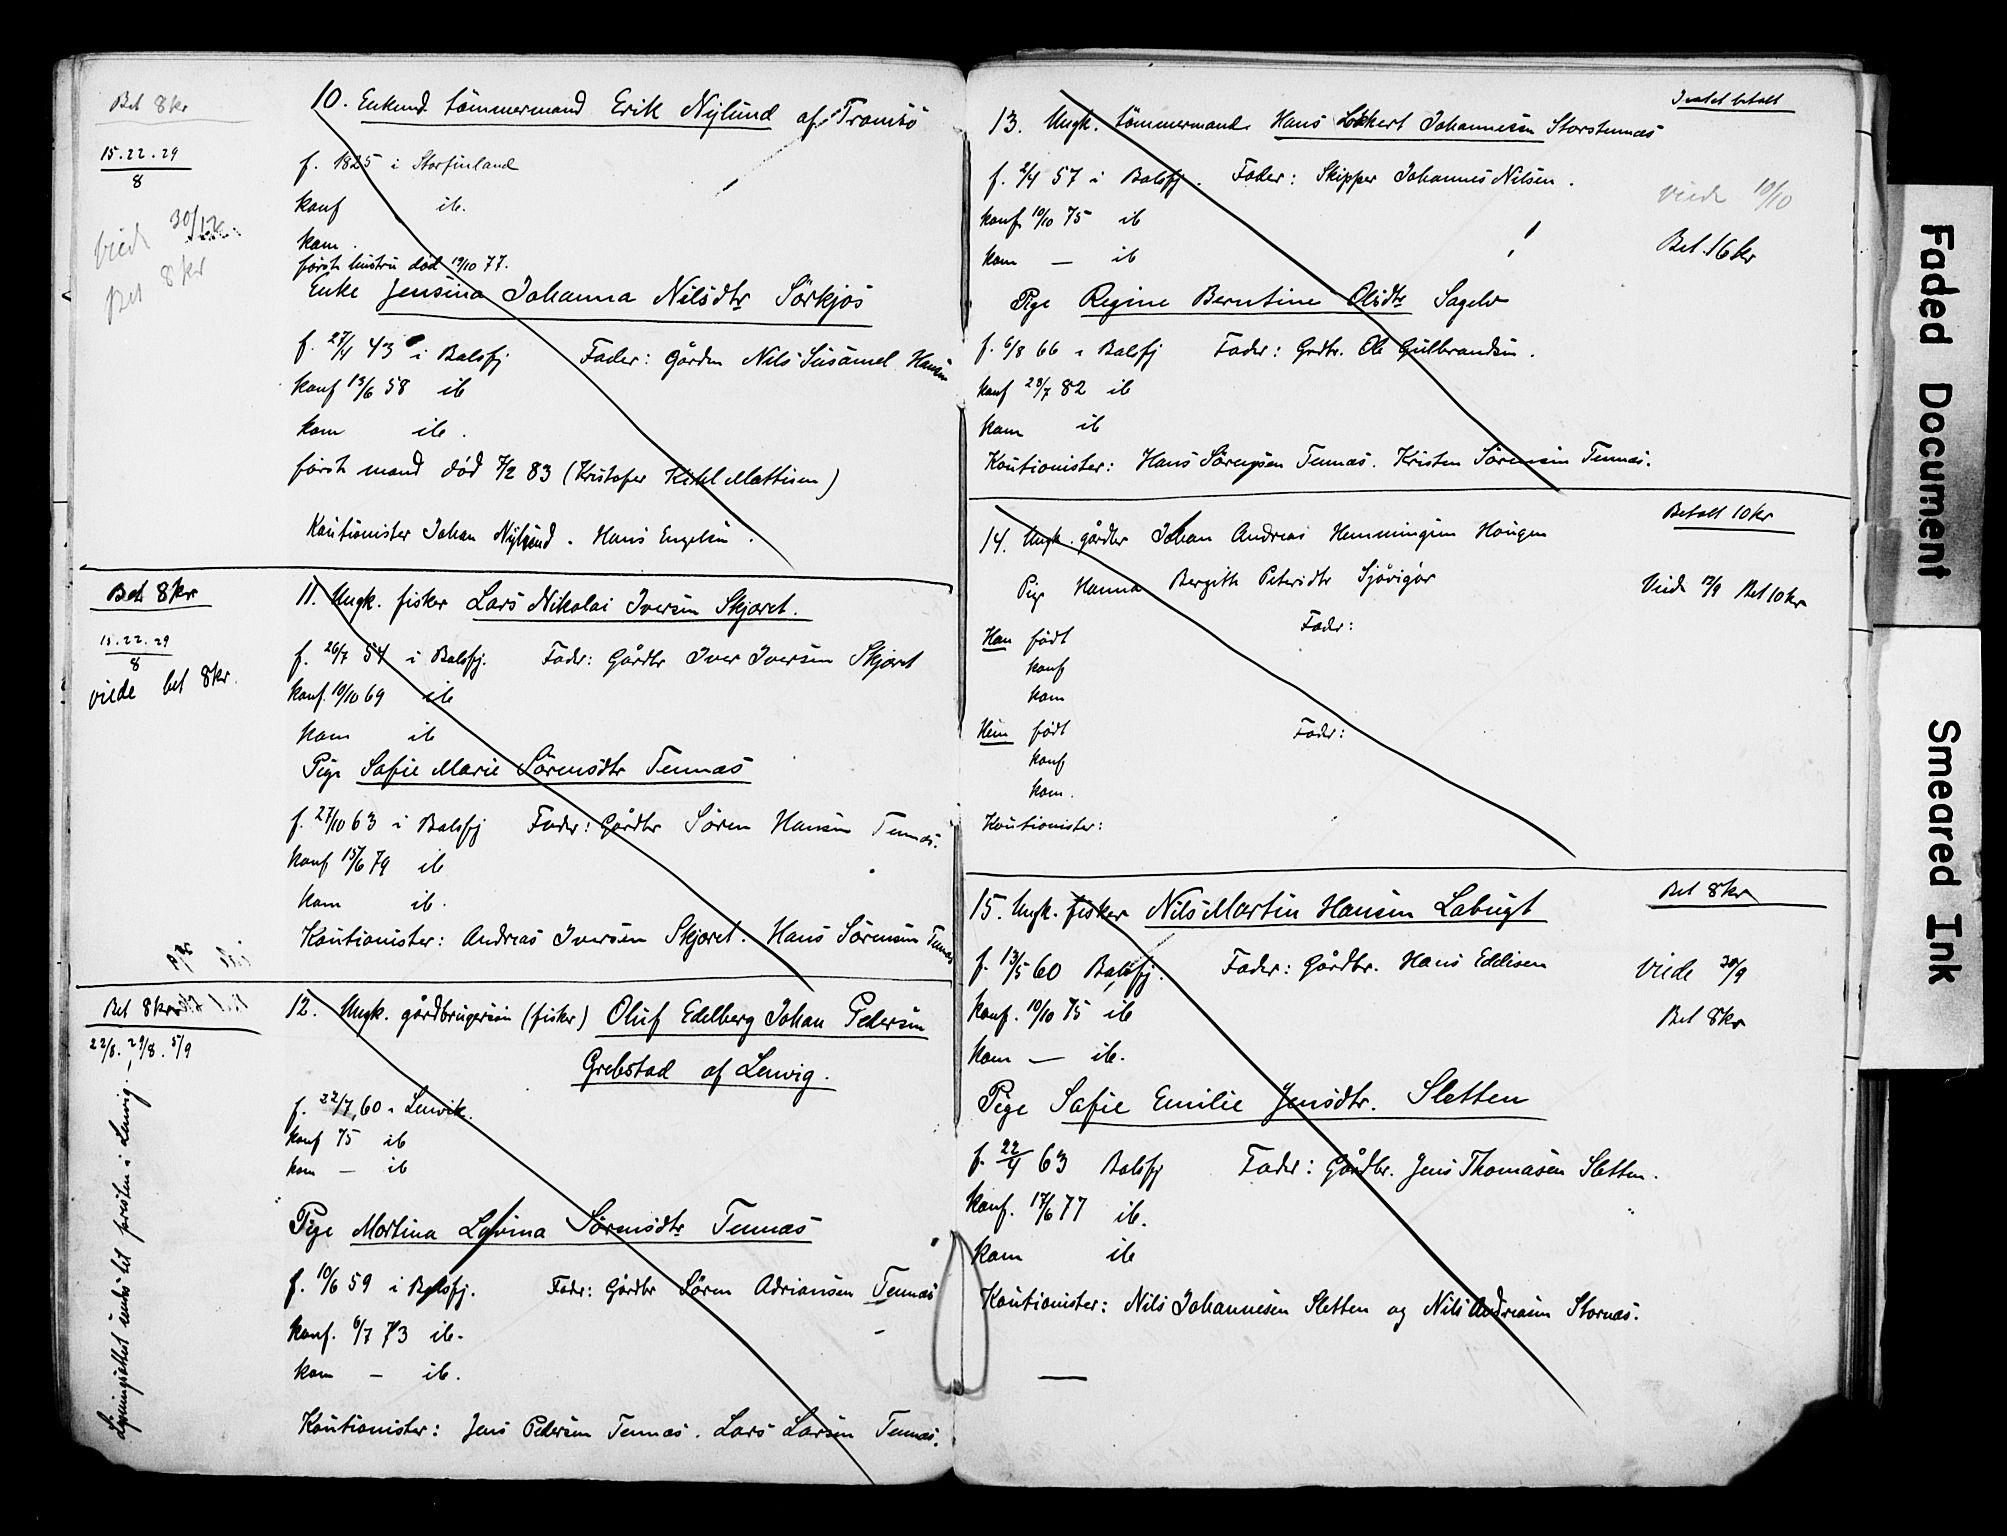 Bet 8 kr
15.22.29
8
viede 30/12
Bet 8 kr
10. Enkemd tömmermand Erik Nylund af Tromsö
f. 1825 i Storfinland
konf ib.
kom.
förste hustru död 19/10 77.
Enke Jensina Johanna Nilsdtr Sörkjos
f. 27/4 43 i Balsfj Fader: Gårdm Nils Susamel Hansen
konf 13/6 58 ib
kom ib.
förste mand död 7/2 83 (Kristofer Kihl Mathisen)
Kautionister Johan Nylund. Hans Engelsen.
Bet. 8 kr
15.22.29
8
viede bet 8 kr.
11. Ungk. fisker Lars Nikolai Iversen Skjæret.
f. 26/7 54 i Balsfj. Fader: Gårdbr Iver Iversen Skjæret
konf. 10/10 69 ib
kom ib
Pige Safie Marie Sörensdtr Tennæs
f. 27/10 63 i Balsfj Fader: Gårdbr Sören Hansen Tennæs.
konf 15/6 79 ib
kom ib.
Kautionister: Andreas Iversen Skjæret. Hans Sörensen Tennæs
Bet 8 kr
22/8. 29/8. 5/9
Lysningsattest undst til presten i Lenvig.
12. Ungk. gårdbrugersön (fisker) Oluf Edelberg Johan Pedersen
Grebstad af Lenvig.
f. 22/7 60 i Lenvik.
konf 75 ib
kom — ib
Pige Martina Lovina Sörensdtr Tennæs
f. 10/6 59 i Balsfj. Fader: Gårdbr Sören Adriansen Tennæs
konf. 6/7 73 ib.
kom — ib.
Kautionister: Jens Pedersen Tennæs. Lars Larsen Tennæs.
betalt
13. Ungk. tömmermand Hans Lökkert Johannesen Storstennæs
f. 2/4 57 i Balsfj. Fader: Skipper Johannes Nilsen.
viede 10/10
konf 10/10 75 ib
Bet. 16 kr
kom — ib
Pige Regine Berntine Olsdtr Sagelv
f. 6/8 66 i Balsfj Fader: Grdbr. Ole Gulbrandsen.
konf 23/7 82 ib
kom ib
Kautionister: Hans Sörensen Tennæs. Kristen Sörensen Tennæs.
Betalt 10 kr
14. Ungk. gårdbr Johan Andreas Hemmingsen Haugen
Pige Hanna Bergith Petersdtr Sjövigör
Viede 12/9 Bet 10 kr
Han födt Fader:
konf
kom
Hun födt Fader:
konf
kom.
Kautionister:
Bet 8 kr
15. Ungk. fisker Nils Martin Hansen Labugt
f. 13/5 60 Balsfj. Fader: Gårdbr. Hans Eddisen
Viede 30/9
konf. 10/10 75 ib
Bet 8 kr
kom — ib.
Pige Safie Emilie Jensdtr. Sletten
f. 22/4 63 Balsfj Fader: Gårdbr. Jens Thomasen Sletten.
konf. 17/6 77 ib.
kom ib
Kautionister: Nils Johannesen Sletten og Nils Andreasen Stornæs.
Faded Document
Smeared Ink